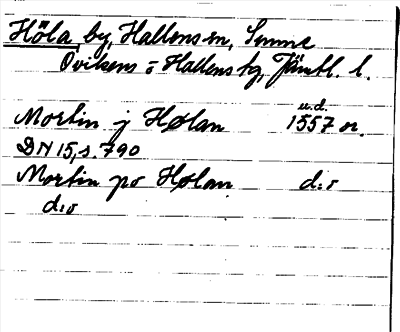 Höla by, Hallens sn, Sunne
Ovikens o Hallens tg, Jämtl. l.
u.d.
Mortin j Hølan 1557 or.
DN 15, s. 790
Mortin po Hølan d:o
d:o